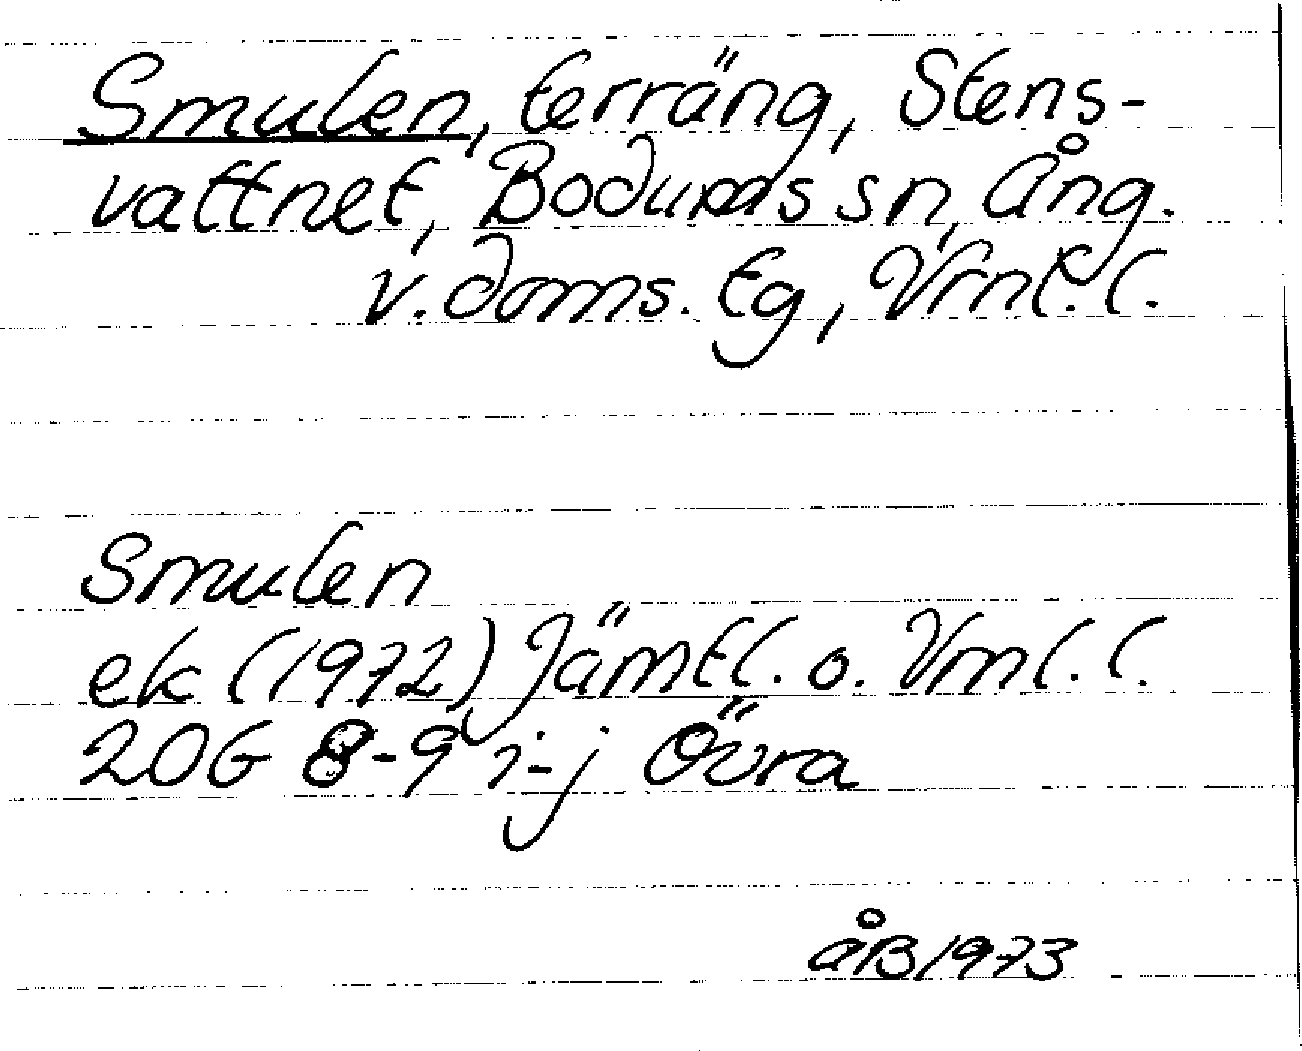 Smulen, terräng, Stens-
vattnet, Bodums sn, Ång.
v. doms. tg, Vrnl. l.
Smulen
ek (1972) Jämtl. o. Vrnl. l.
20G 8-9 i-j Övra
åB 1973